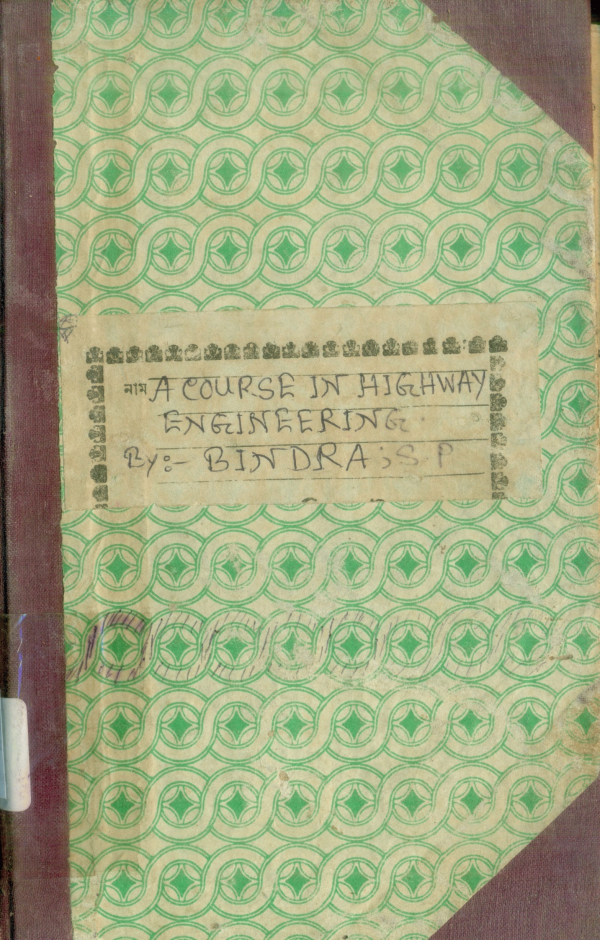 নাম A COURSE IN HIGHWAY
ENGINEERING
By:- BINDRA ; S.P